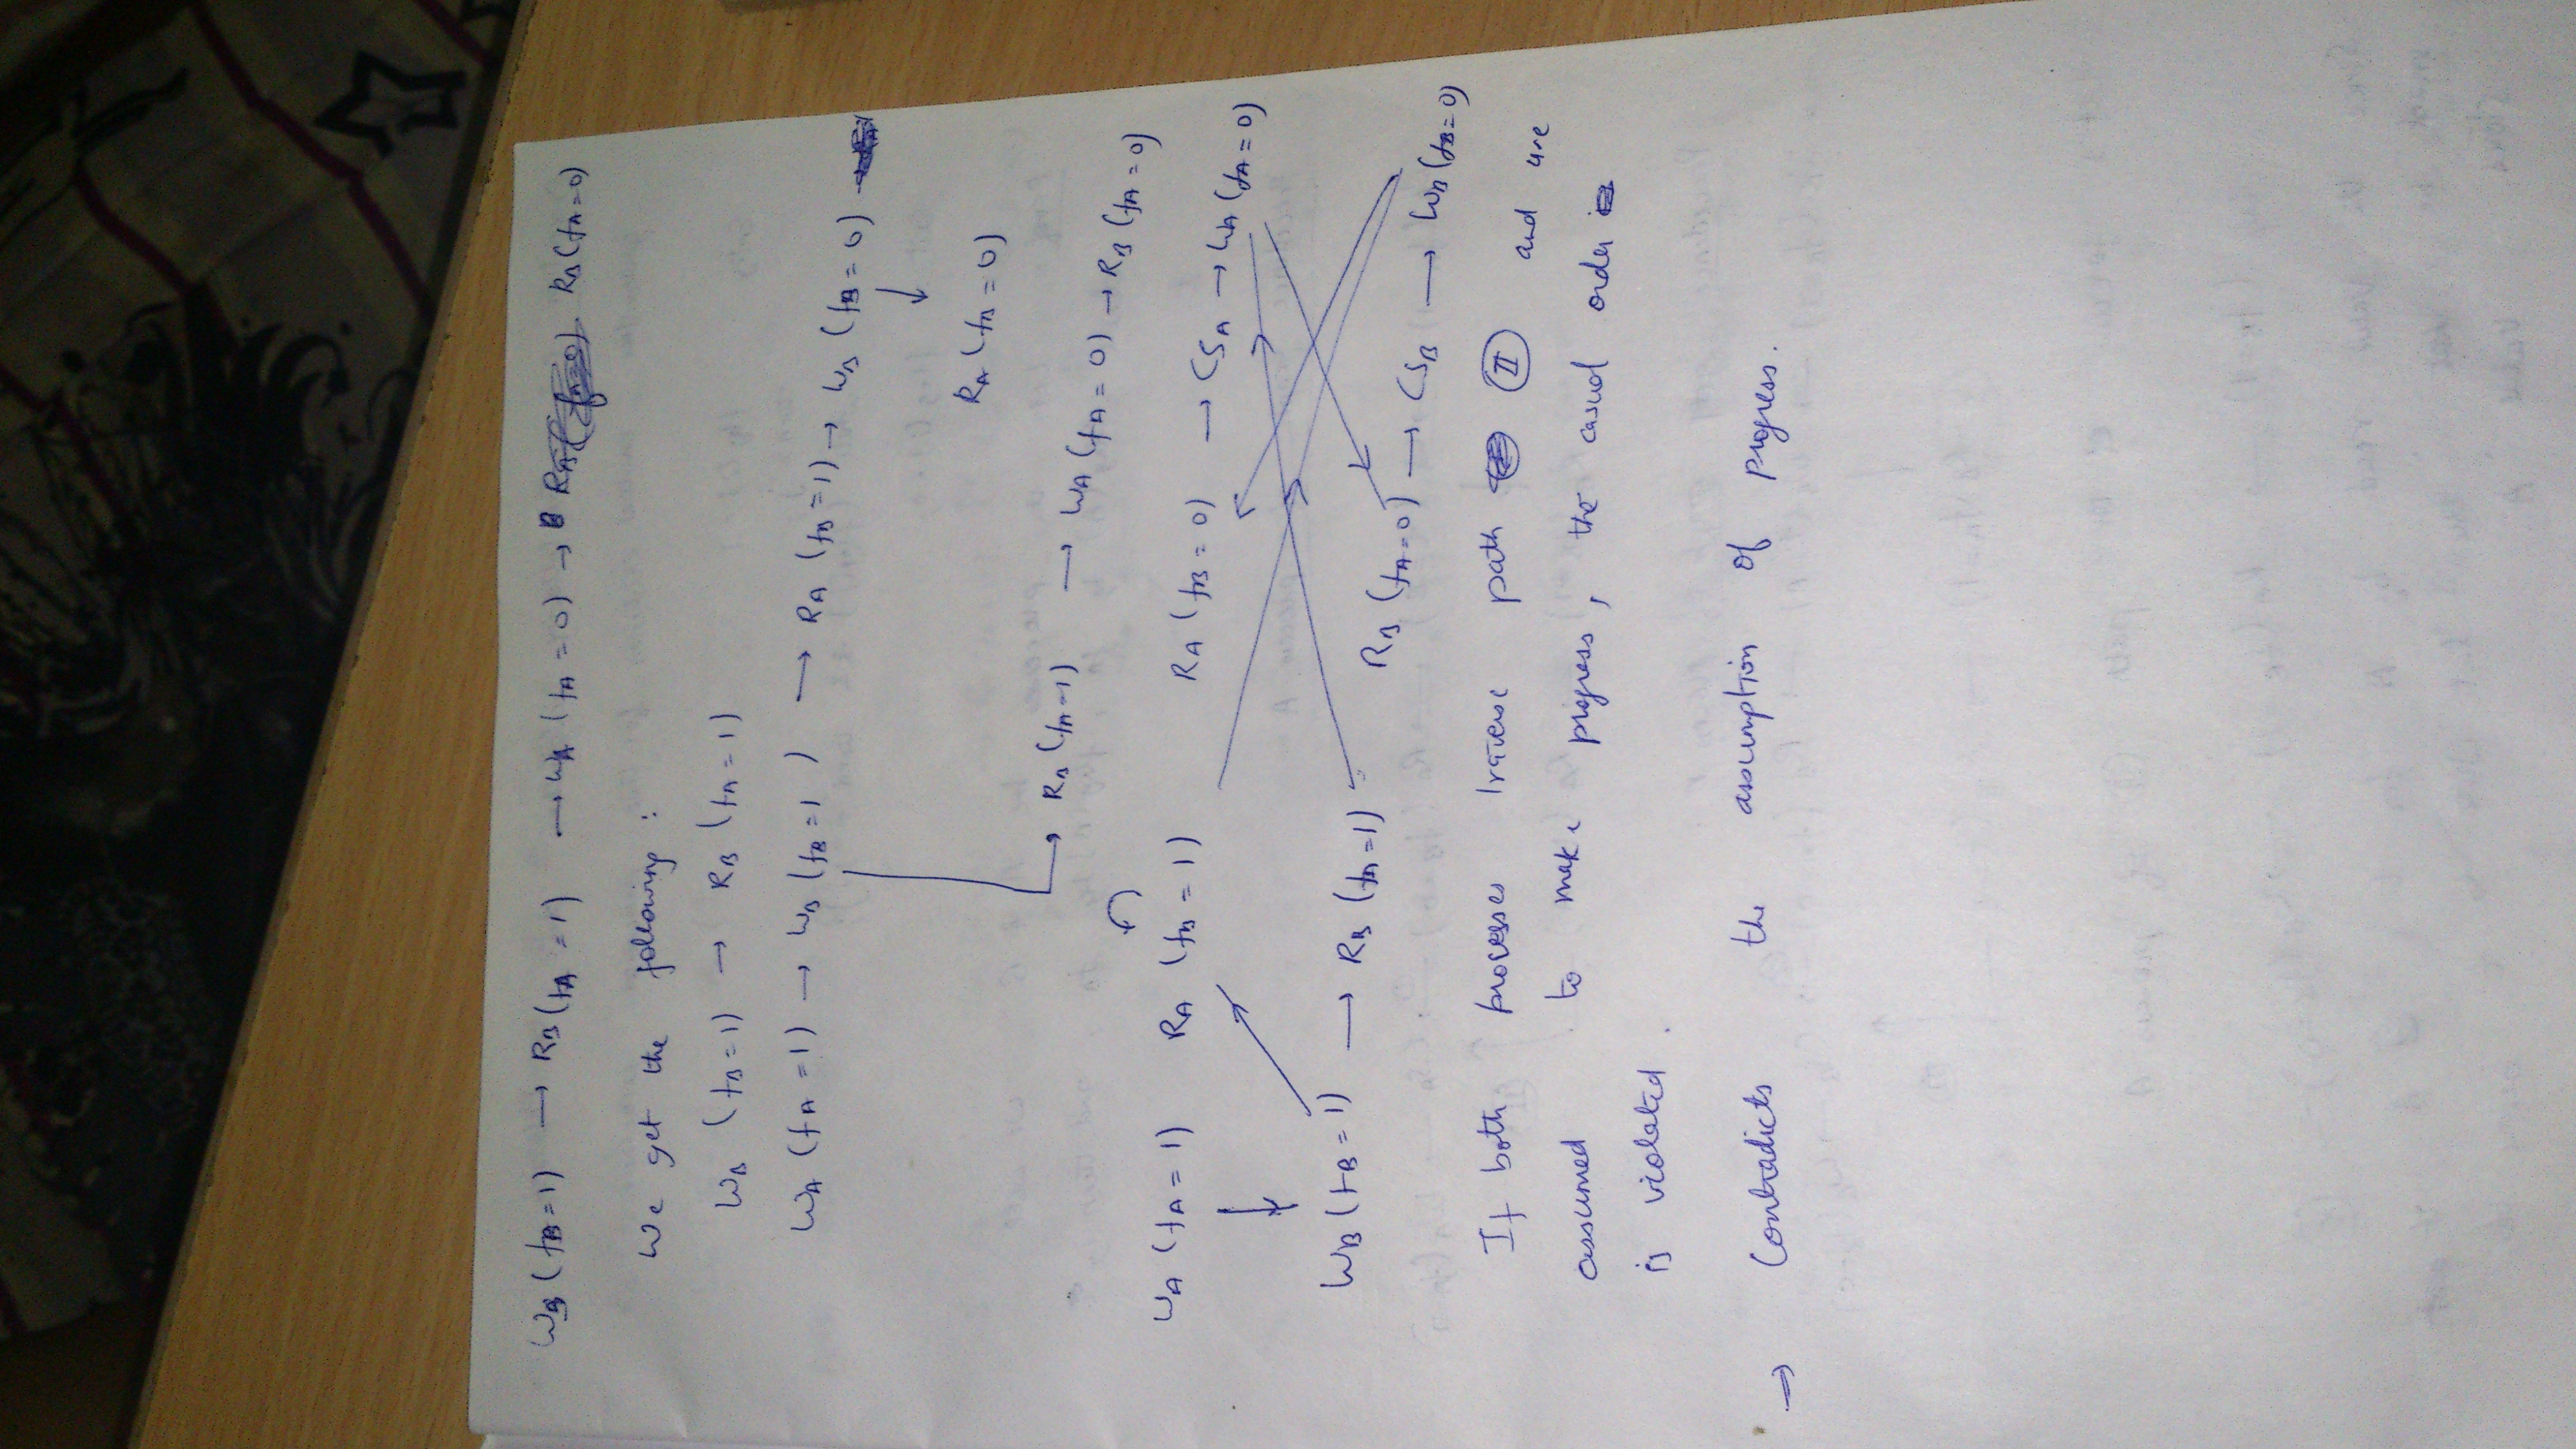 WB (fB=1) → RB (fA = 1) → WA (fA = 0) → RB (fA=0)
We get the following :
WB (fB=1) → RB (fA = 1)
WA (fA =1) → WB (fB=1 ) → RA (fB=1) → WB (fB = 0)
↓
RA (fB = 0)
→ RB (fA=1) → WA (fA = 0) → RB (fA = 0)
WA (fA = 1) RA (fB = 1) RA (fB = 0) → CSA → WA (fA = 0)
WB (fB = 1) → RB (fA =1) RB (fA = 0) → CSB → WB (fB = 0)
If both processes traverse path II and are
assumed to make progress, the casual order
is violated.
⇒ Contradicts the assumption of progress.